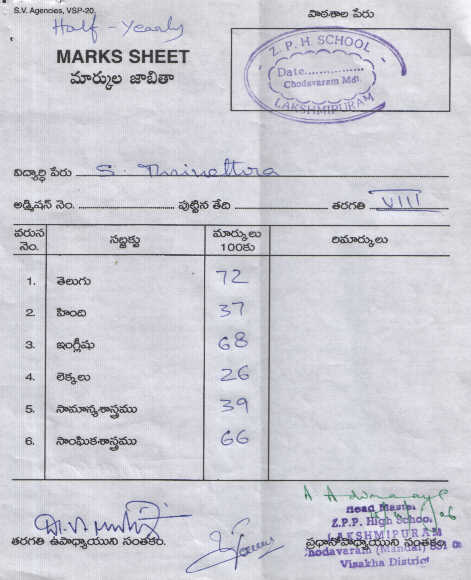 S.V. Agencies, VSP-20.
Half-Yearly
MARKS SHEET
మార్కుల జాబితా
పాఠశాల పేరు
Z.P.H SCHOOL
Date................
Chodavaram Mdl.
LAKSHMIPURAM
విద్యార్థి పేరు S.
అడ్మిషన్ నెం. పుట్టిన తేది తరగతి VIII
వరుస నెం. సబ్జక్టు మార్కులు 100కు రిమార్కులు
1. తెలుగు 72
2. హింది 37
3. ఇంగ్లీషు 68
4. లెక్కలు 26
5. సామాన్యశాస్త్రము 39
6. సాంఘికశాస్త్రము 66
Head Master
Z.P.P. High School
LAKSHMIPURAM
Chodavaram (Mandal)
Visakha District
తరగతి ఉపాధ్యాయుని సంతకం. ప్రధానోపాధ్యాయుని సంతకం